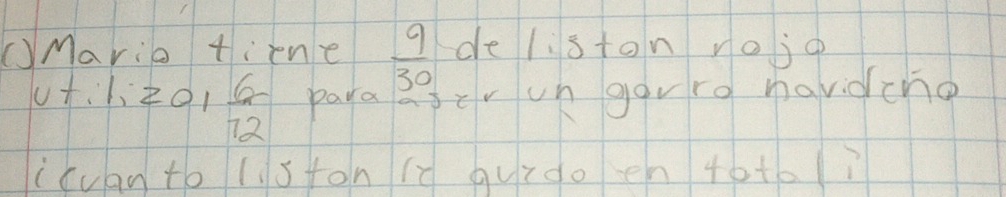 c) Mario tiene 9/30 de liston rojo
utilizo, 6/12 para aser un gorro navideño
¿cuanto liston le quedo en total?